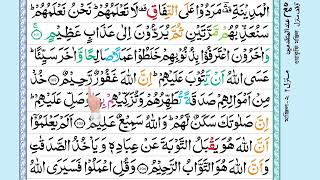 الْمَدِيْنَةِ ۛ مَرَدُوْا عَلَى النِّفَاقِ ۛ لَا تَعْلَمُهُمْ ؕ نَحْنُ نَعْلَمُهُمْ ؕ
سَنُعَذِّبُهُمْ مَّرَّتَيْنِ ثُمَّ يُرَدُّوْنَ اِلٰى عَذَابٍ عَظِيْمٍ
وَاٰخَرُوْنَ اعْتَرَفُوْا بِذُنُوْبِهِمْ خَلَطُوْا عَمَلًا صَالِحًا وَّاٰخَرَ سَيِّئًا ؕ
عَسَى اللّٰهُ اَنْ يَّتُوْبَ عَلَيْهِمْ ؕ اِنَّ اللّٰهَ غَفُوْرٌ رَّحِيْمٌ خُذْ
مِنْ اَمْوَالِهِمْ صَدَقَةً تُطَهِّرُهُمْ وَتُزَكِّيْهِمْ بِهَا وَصَلِّ عَلَيْهِمْ ؕ
اِنَّ صَلٰوتَكَ سَكَنٌ لَّهُمْ ؕ وَاللّٰهُ سَمِيْعٌ عَلِيْمٌ اَلَمْ يَعْلَمُوْۤا
اَنَّ اللّٰهَ هُوَ يَقْبَلُ التَّوْبَةَ عَنْ عِبَادِهٖ وَيَاْخُذُ الصَّدَقٰتِ
وَاَنَّ اللّٰهَ هُوَ التَّوَّابُ الرَّحِيْمُ وَقُلِ اعْمَلُوْا فَسَيَرَى اللّٰهُ